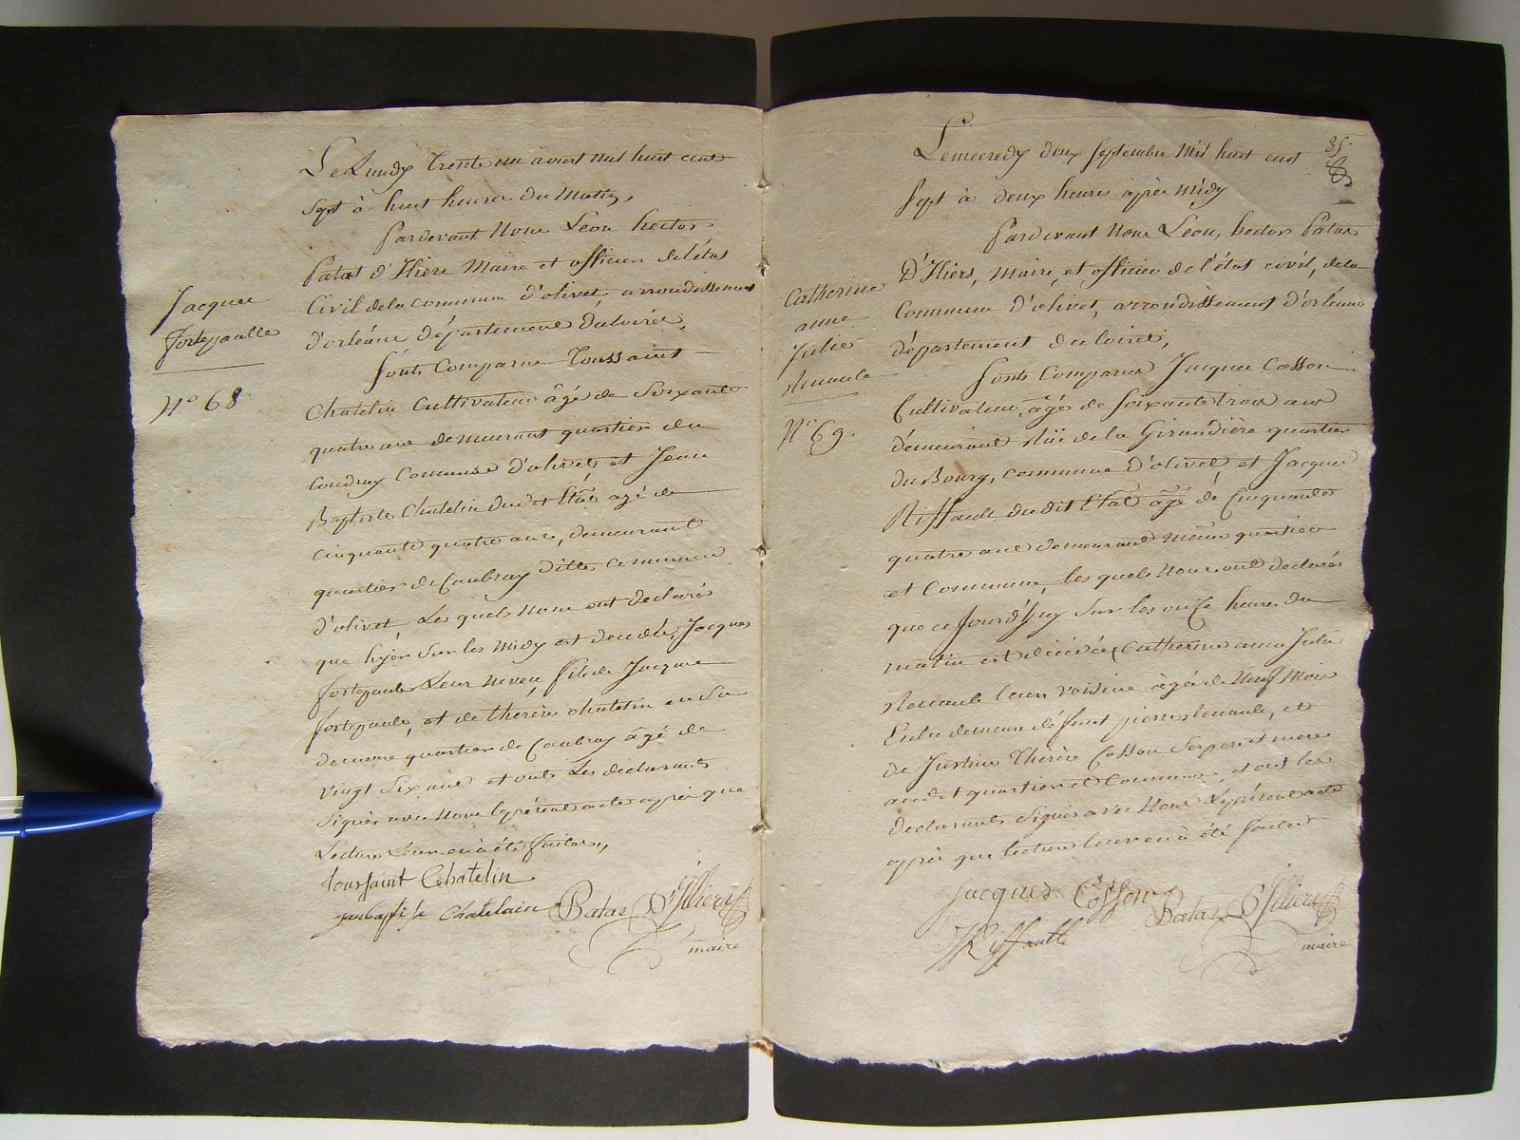 Le Lundy trente un aoust mil huit cent
sept à huit heures du Matin,
Pardevant Nous Léon hector
Patas d'Illiers Maire et officier de l'état
Civil de la commune d'olivet, arrondissement
d'orléans département du loiret,
Jacques
fortepaulle
Sonts Comparus Toussaint
N° 68
Chatelin Cultivateur âgé de Soixante
quatre ans demeurant quartier du
Coudray Commune d'olivet, et Jean
Baptiste Chatelin dudit Etat âgé de
cinquante quatre ans, demeurant
quartier de Caubray ditte commune
d'olivet Les quels Nous ont declarés
que hyer Sur les Midy est décédé, Jacques
fortepaule Leur Neveu, fils de Jacques
fortepaule, et de therèse chatelin en Sa
demeure quartier de Caubray âgé de
vingt Six ans et onts Les declarants
Signés avec Nous Le présent acte après que
Lecture Leur en à été faitte,,
toussaint Chatelin
jean baptiste Chatelain Patas D'Illiers
maire
35.
Le mecredy deux Septembre Mil huit cent
Sept à deux heures après Midy
Pardevant Nous Léon, hector Patas
D'Illiers, Maire, et officier de l'état civil, de la
Commune d'olivet, arrondissement d'orléans
département du loiret,
Catherine
anne
Julie
Renaule
N° 69.
Sonts Comparus Jacques Cosson
Cultivateur âgé de Soixante trois ans
demeurant Rüe de la Giraudière quartier
du Bourg, commune d'olivet, et Jacques
Riffault dudit Etat âgé de Cinquante
quatre ans demeurant même quartier
et Commune, les quels Nous ont declarés
que ce Jourd'huy Sur les onze heures du
matin est décédée Catherine anne Julie
Renaule leur voisine âgée de Neuf Mois
de deffunt pierre Renaule, et
de Justine Thérèse Cosson Ses pere et mere
audit quartier et Commune, et ont les
declarants Signés avec Nous Le présent acte
après que lecture leur en à été faitte
Jacques Cosson Patas D'Illiers
J Riffault maire